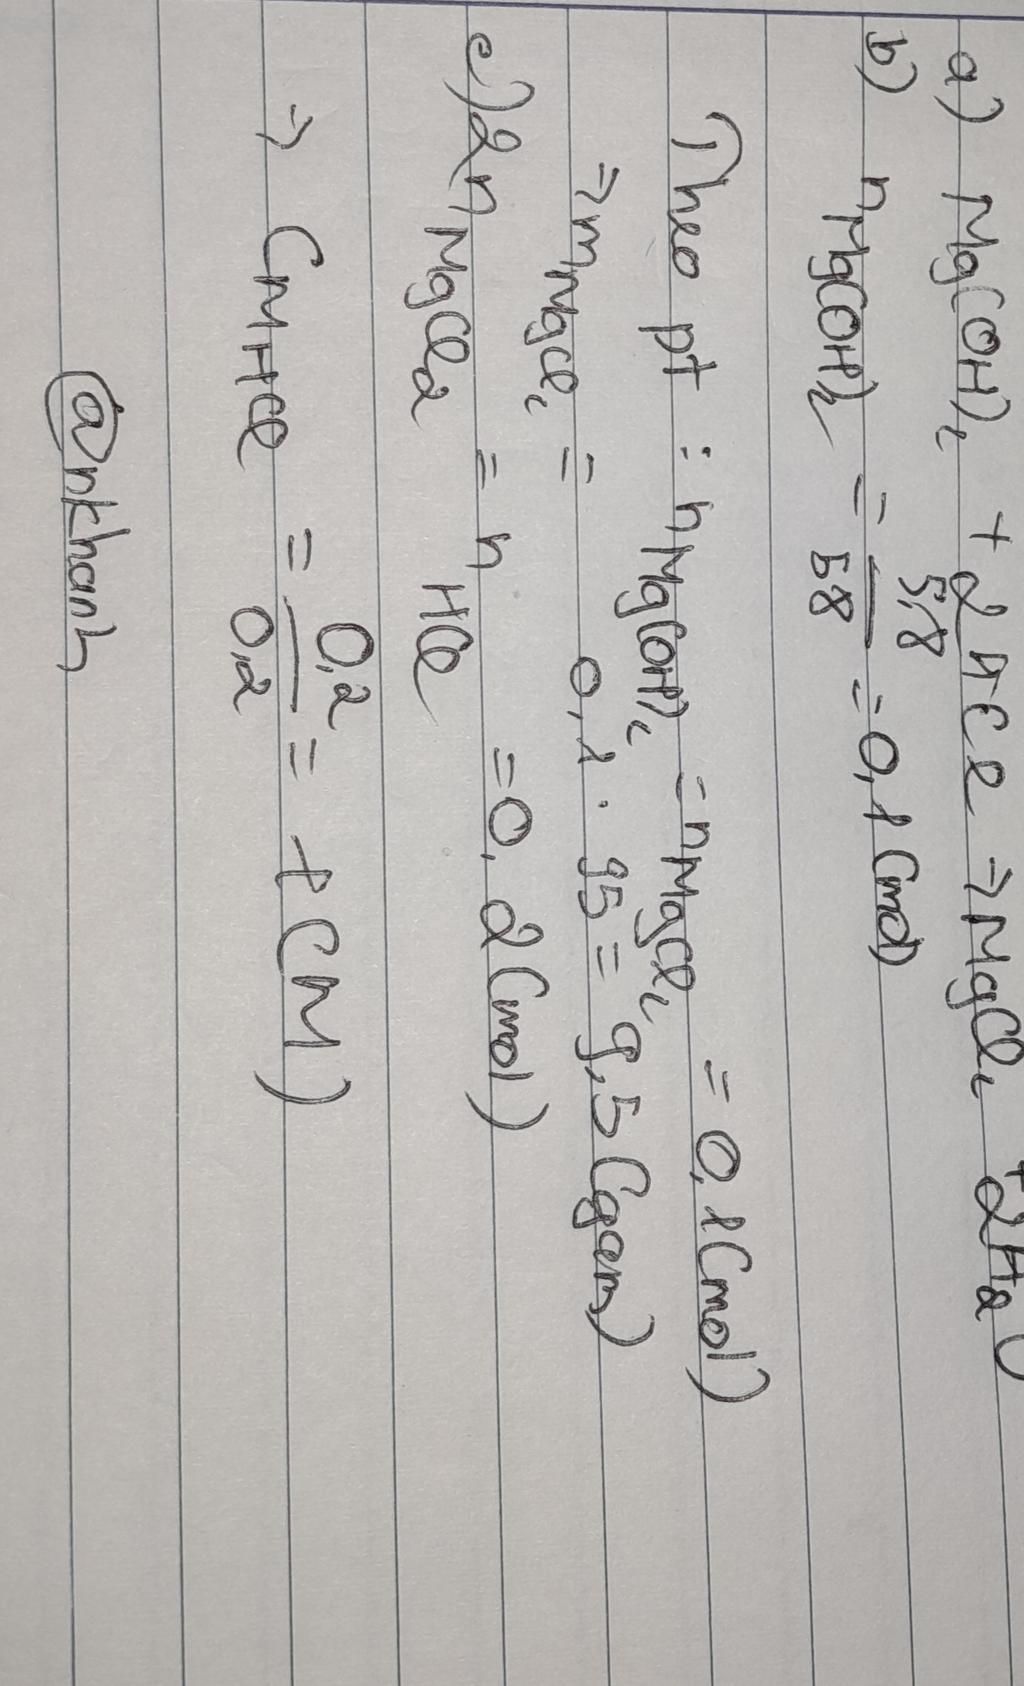 a) Mg(OH)₂ + 2HCl ⇒ MgCl₂ + 2H₂O
b) nMg(OH)₂ = 5,8/58 = 0,1 (mol)
Theo pt : nMg(OH)₂ = nMgCl₂ = 0,1 (mol)
⇒ mMgCl₂ = 0,1 . 95 = 9,5 (gam)
c) 2nMgCl₂ = nHCl = 0,2 (mol)
⇒ CMHCl = 0,2/0,2 = 1 (M)
@nkhanh